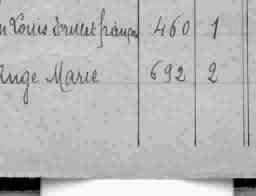 n Louis Drulet françois 460 1
Ange Marie 692 2